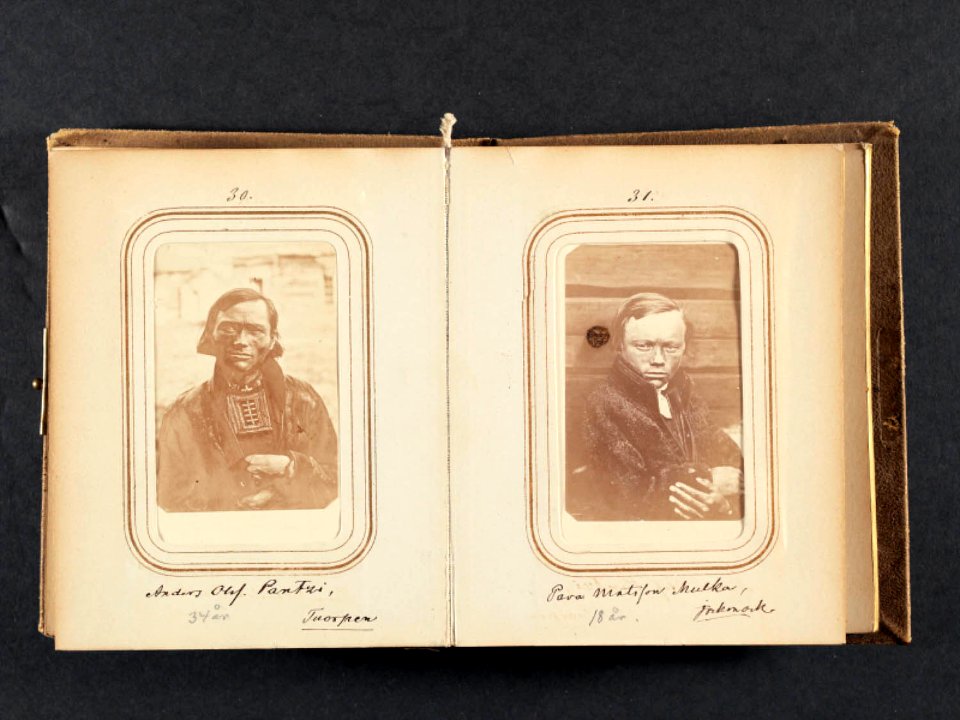 30.
Anders Olsf. Pantzi,
34 år
Tuorpen
31.
Pava Matsson Mulka,
18 år.
Jockmock.